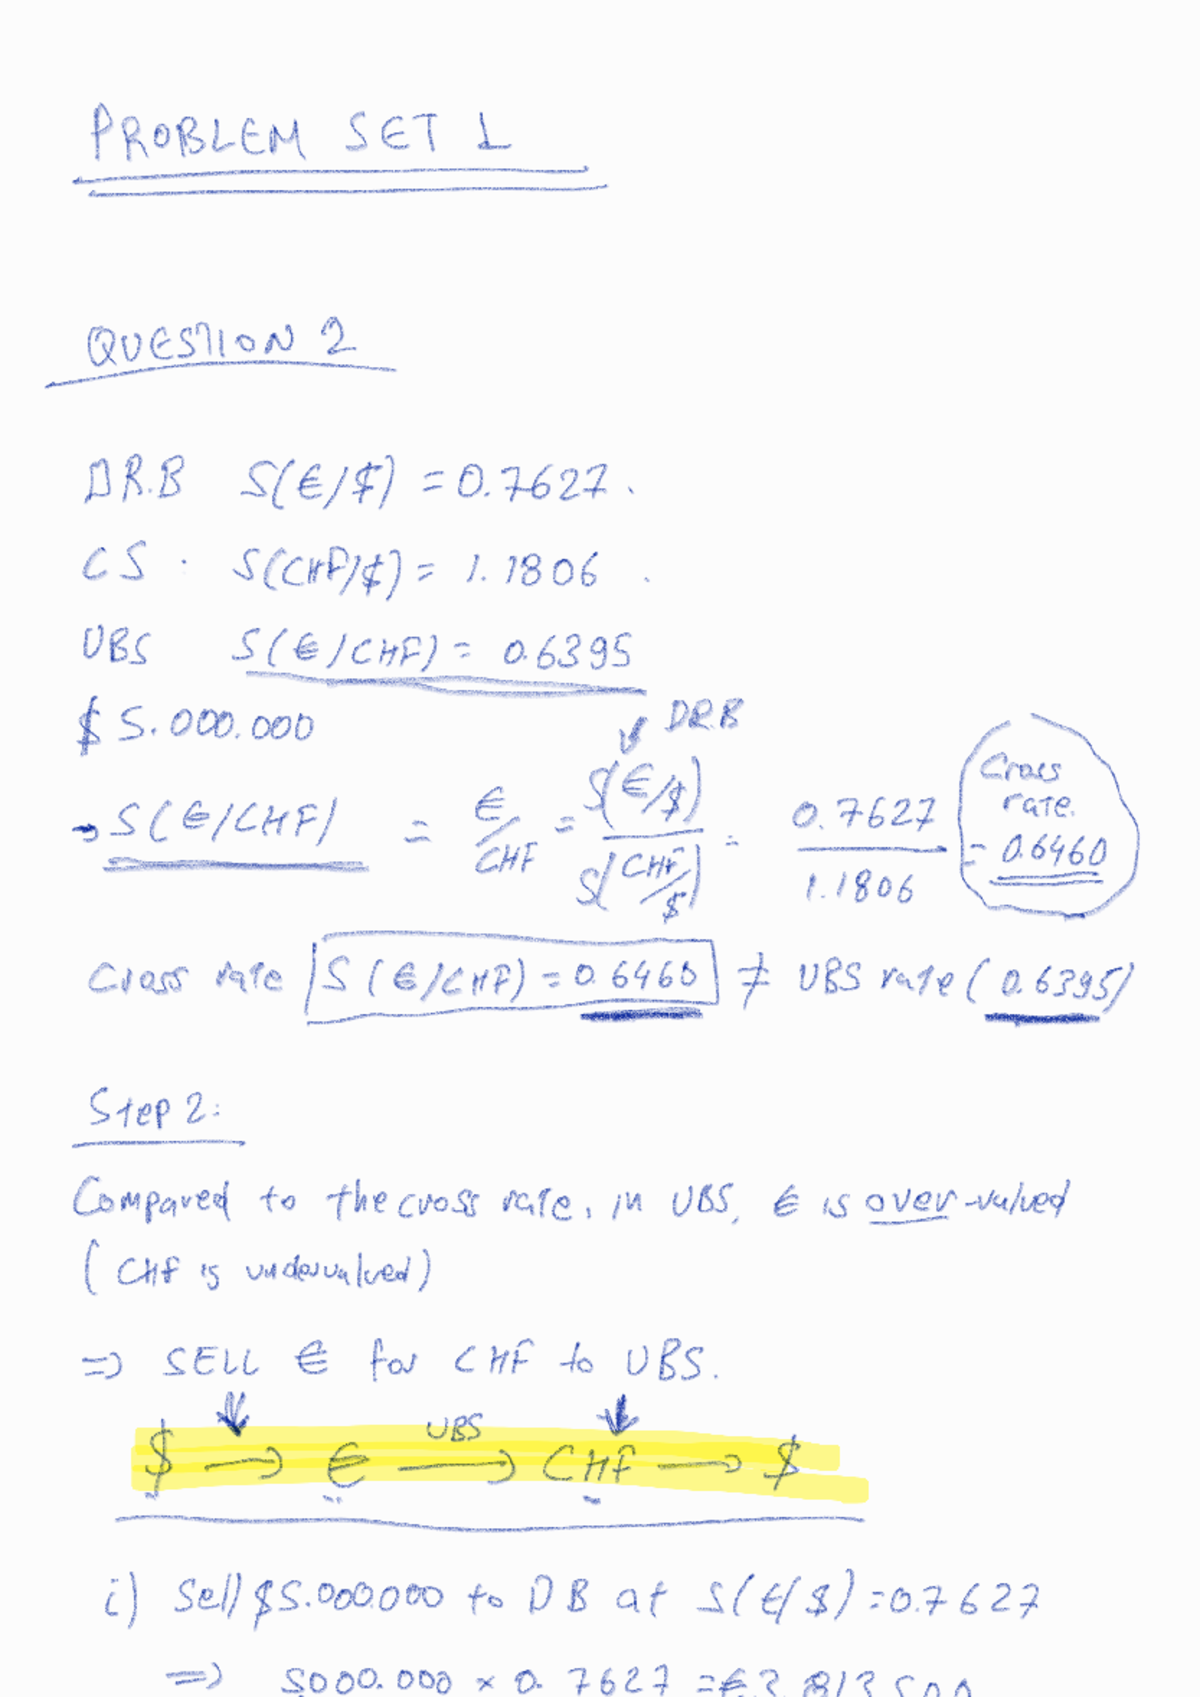 PROBLEM SET 1
QUESTION 2
D.R.B S(€/$) = 0.7627.
CS . S(CHF/$) = 1.1806 .
UBS S(€/CHF) = 0.6395
$ 5.000.000
↓ D.R.B
→ S(€/CHF) = €/CHF = S(€/$) / S(CHF/$) = 0.7627 / 1.1806 = 0.6460
Cross rate.
Cross rate S(€/CHF) = 0.6460 ≠ UBS rate (0.6395)
Step 2:
Compared to the cross rate, in UBS, € is over-valued
(CHF is undervalued)
=> SELL € for CHF to UBS.
$ → € UBS → CHF → $
i) Sell $5.000.000 to DB at S(€/$) = 0.7627
=> 5000.000 x 0.7627 = € 3.813.500